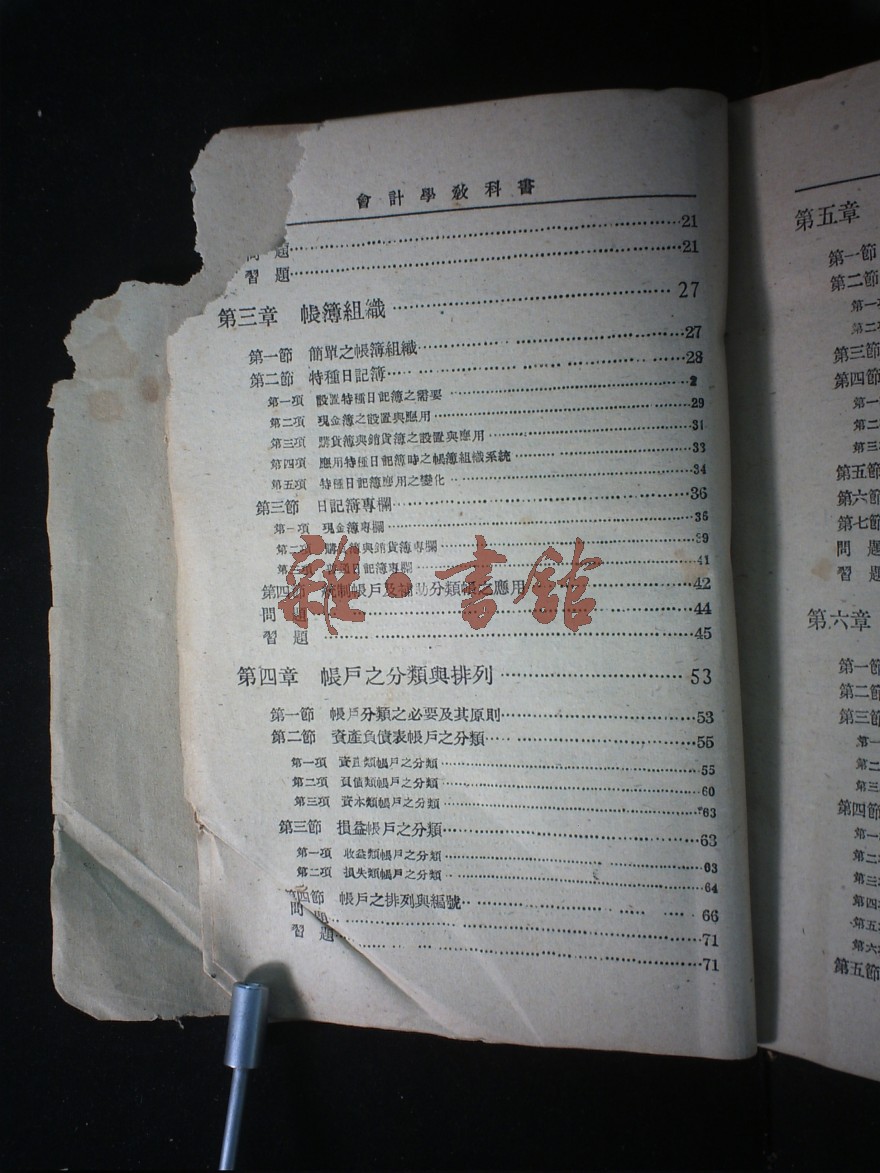 會計學教科書
問題……21
習題……21
第三章 帳簿組織……27
第一節 簡單之帳簿組織……27
第二節 特種日記簿……28
第一項 設置特種日記簿之需要……2
第二項 現金簿之設置與應用……29
第三項 購貨簿與銷貨簿之設置與應用……31
第四項 應用特種日記簿時之帳簿組織系統……33
第五項 特種日記簿應用之變化……34
第三節 日記簿專欄……36
第一項 現金簿專欄……36
第二項 購貨簿與銷貨簿專欄……39
第三項 普通日記簿專欄……41
第四節 統制帳戶及補助分類帳之應用……42
問題……44
習題……45
第四章 帳戶之分類與排列……53
第一節 帳戶分類之必要及其原則……53
第二節 資產負債表帳戶之分類……55
第一項 資產類帳戶之分類……55
第二項 負債類帳戶之分類……60
第三項 資本類帳戶之分類……63
第三節 損益帳戶之分類……63
第一項 收益類帳戶之分類……63
第二項 損失類帳戶之分類……64
第四節 帳戶之排列與編號……66
問題……71
習題……71
雜·書館
第五章
第一節
第二節
第一
第二
第三節
第四節
第一
第二
第三
第五節
第六節
第七節
問題
習題
第六章
第一節
第二節
第三節
第一
第二
第三
第四節
第一
第二
第三
第四
第五
第六
第五節